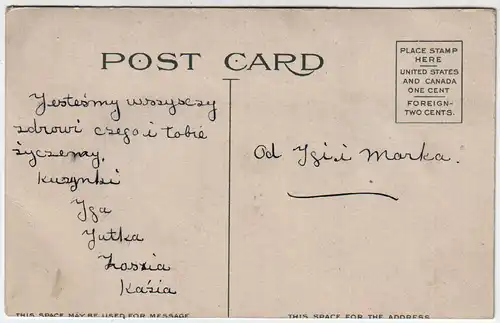 POST CARD
PLACE STAMP
HERE
UNITED STATES
AND CANADA
ONE CENT
FOREIGN-
TWO CENTS.
Jesteśmy wszyscy
zdrowi czego i tobie
życzemy.
Kuzynki
Iga
Jutka
Zossia
Kasia
Od Igi i Marka.
THIS SPACE MAY BE USED FOR MESSAGE
THIS SPACE FOR THE ADDRESS